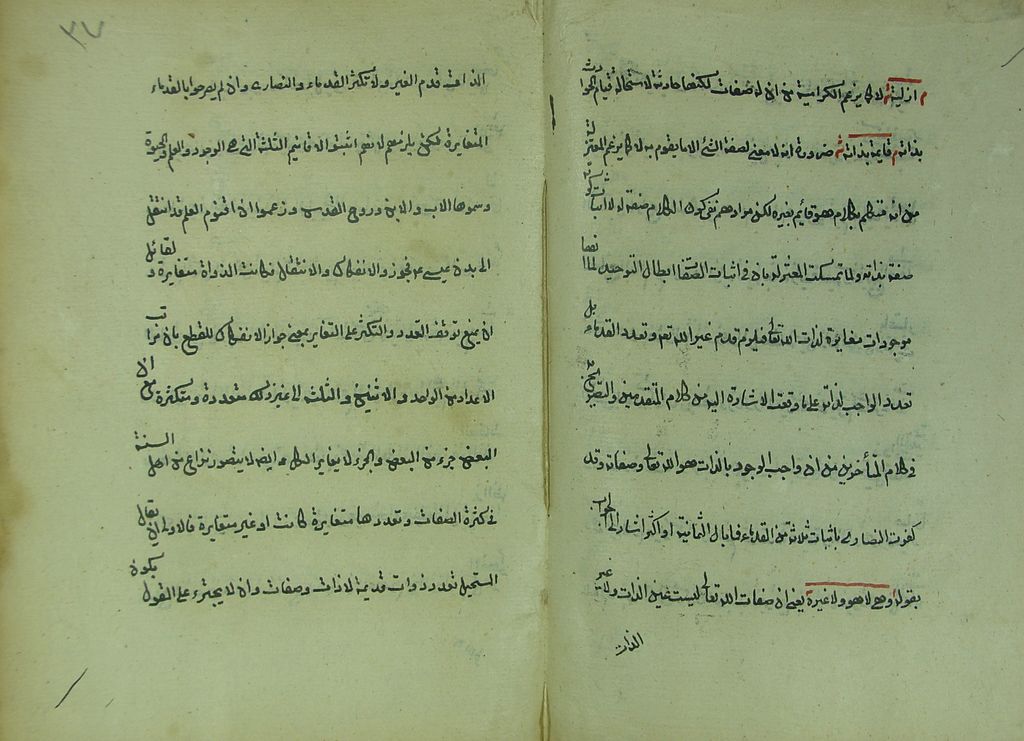 ازلية لا كما يزعم الكرامية من ان له صفات لكنها حادثة لاستحالة قيام الحوادث
بذاته قايمة بذاته ضرورة انه لا معنى لصفة الشئ الا ما يقوم به لا كما يزعم المعتزلة
من انه متكلم بكلام هو قائم بغيره لكن مرادهم نفى كون الكلام صفة له لا اثبات كونه
صفة بذاته ولما تمسكت المعتزلة بان فى اثبات الصفات ابطال التوحيد لما انها
موجودات مغايرة لذات الله تعالى فيلزم قدم غير الله تعالى وتعدد القدماء بل
تعدد الواجب لذاته على ما وقعت الاشارة اليه من كلام المتقدمين والتصريح به
فى كلام المتأخرين من ان واجب الوجود بالذات هو الله تعالى وصفاته وقد
كفرت النصارى باثبات ثلاثة من القدماء فما بال الثمانية او اكثر اشار الى الجواب
بقوله وهى لا هو ولا غيره يعنى ان صفات الله تعالى ليست عين الذات ولا غير
الذات
٣٧
الذات قدم الغير ولا تكثر القدماء والنصارى وان لم يصرحوا بالقدماء
المتغايرة لكن يلزمهم لانهم اثبتوا الاقانيم الثلثة التى هى الوجود والعلم والحيوة
وسموها الاب والابن وروح القدس وزعموا ان اقنوم العلم قد انتقل
الى بدن عيسى عم فجوزوا الانفكاك والانتقال فكانت الذواة متغايرة ولقائل
ان يمنع توقف التعدد والتكثر على التغاير بمعنى جواز الانفكاك للقطع بان مراتب
الاعداد من الواحد والاثنين والثلثة الى غير ذلك متعددة ومتكثرة مع ان
البعض جزء من البعض والجزء لا يغاير الكل وايضا لا يتصور نزاع من اهل السنة
فى كثرة الصفات وتعددها متغايرة كانت او غير متغايرة فالاولى ان يقال
المستحيل تعدد ذوات قديمة لا ذات وصفات وان لا يجترء على القول بكون